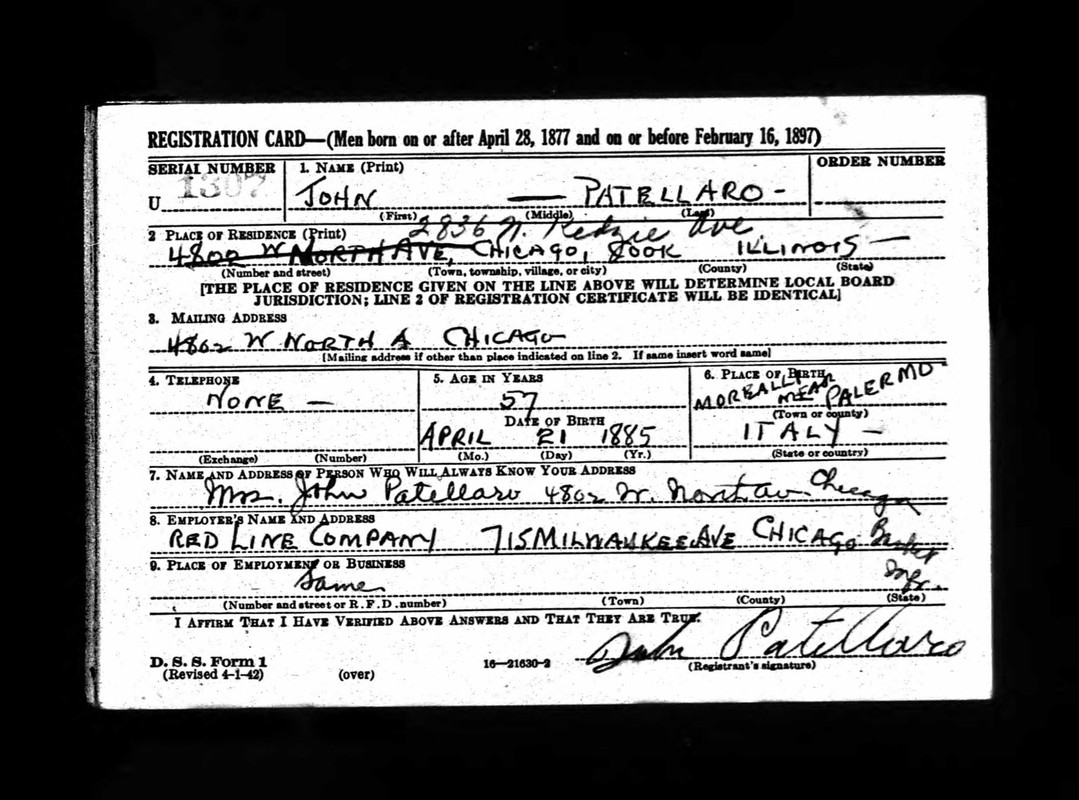 REGISTRATION CARD—(Men born on or after April 28, 1877 and on or before February 16, 1897)
SERIAL NUMBER 1. NAME (Print) ORDER NUMBER
U 1307 JOHN — PATELLARO -
(First) (Middle) (Last)
2836 N. Kedzie Ave
2 PLACE OF RESIDENCE (Print)
4802 W NORTH AVE, CHICAGO, COOK ILLINOIS —
(Number and street) (Town, township, village, or city) (County) (State)
[THE PLACE OF RESIDENCE GIVEN ON THE LINE ABOVE WILL DETERMINE LOCAL BOARD
JURISDICTION; LINE 2 OF REGISTRATION CERTIFICATE WILL BE IDENTICAL]
3. MAILING ADDRESS
4802 W NORTH A CHICAGO
[Mailing address if other than place indicated on line 2. If same insert word same]
4. TELEPHONE 5. AGE IN YEARS 6. PLACE OF BIRTH
NONE — 57 NEAR PALERMO
DATE OF BIRTH (Town or county)
APRIL 21 1885 ITALY —
(Exchange) (Number) (Mo.) (Day) (Yr.) (State or country)
7. NAME AND ADDRESS OF PERSON WHO WILL ALWAYS KNOW YOUR ADDRESS
Mrs. John Patellaro 4802 W. North av. Chicago
8. EMPLOYER'S NAME AND ADDRESS
RED LINE COMPANY 715 MILWAUKEE AVE CHICAGO
9. PLACE OF EMPLOYMENT OR BUSINESS
Same Mfr.
(Number and street or R. F. D. number) (Town) (County) (State)
I AFFIRM THAT I HAVE VERIFIED ABOVE ANSWERS AND THAT THEY ARE TRUE.
John Patellaro
D. S. S. Form 1 16—21630-2 (Registrant's signature)
(Revised 4-1-42) (over)